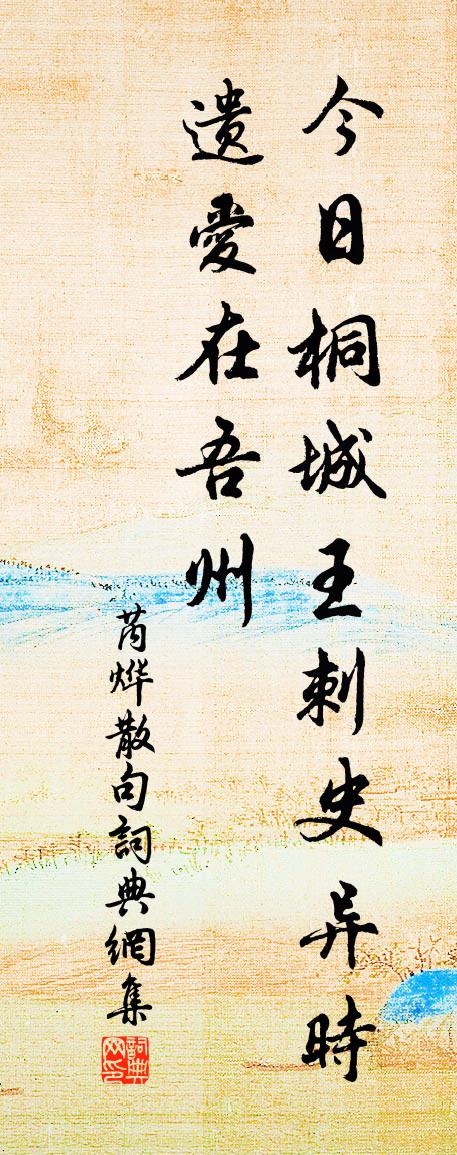 今日桐城王刺史异時
遗愛在吾州
芮烨散句詞典網集
詞典网印